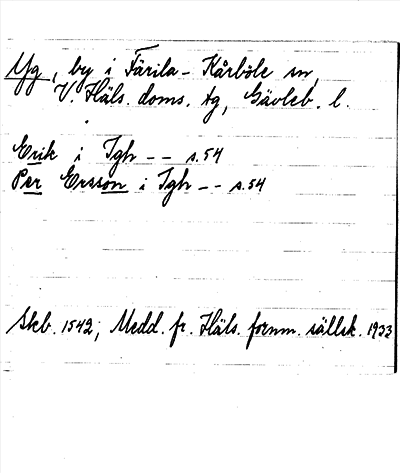 Yg, by i Färila-Kårböle sn,
V. Häls. doms. tg, Gävleb. l.
Erik i Igh -- s.54
Per Ersson i Igh -- s.54
Skb. 1542; Medd. fr. Häls. fornm. sällsk. 1933